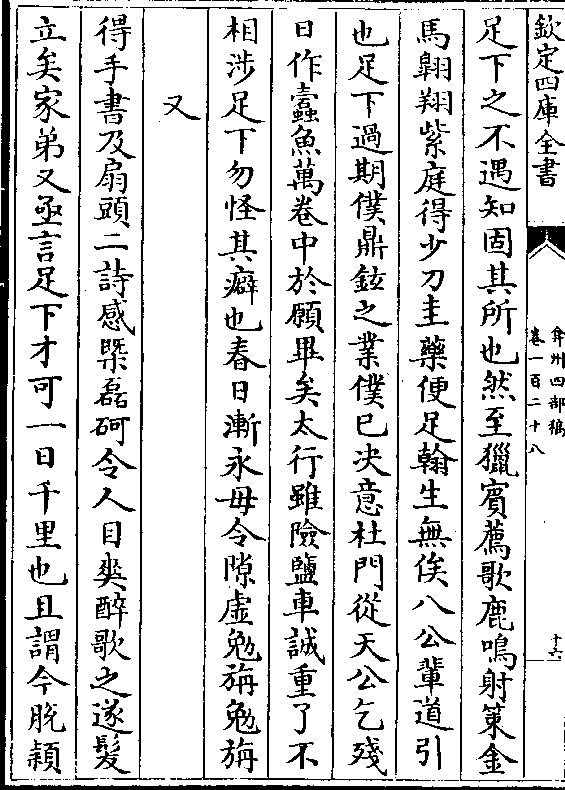 欽定四庫全書
弇州四部稿
卷一百二十八
十六
足下之不遇知固其所也然至獵賓薦歌鹿鳴射策金
馬翺翔紫庭得少刀圭藥便足翰生無俟八公輩道引
也足下過期僕鼎鉉之業僕已决意杜門從天公乞殘
日作蠹魚萬卷中於願畢矣太行雖險鹽車誠重了不
相涉足下勿怪其癖也春日漸永毋令隙虚勉旃勉旃
又
得手書及扇頭二詩感槩磊砢令人目爽醉歌之遂髮
立矣家弟又亟言足下才可一日千里也且謂今脱穎